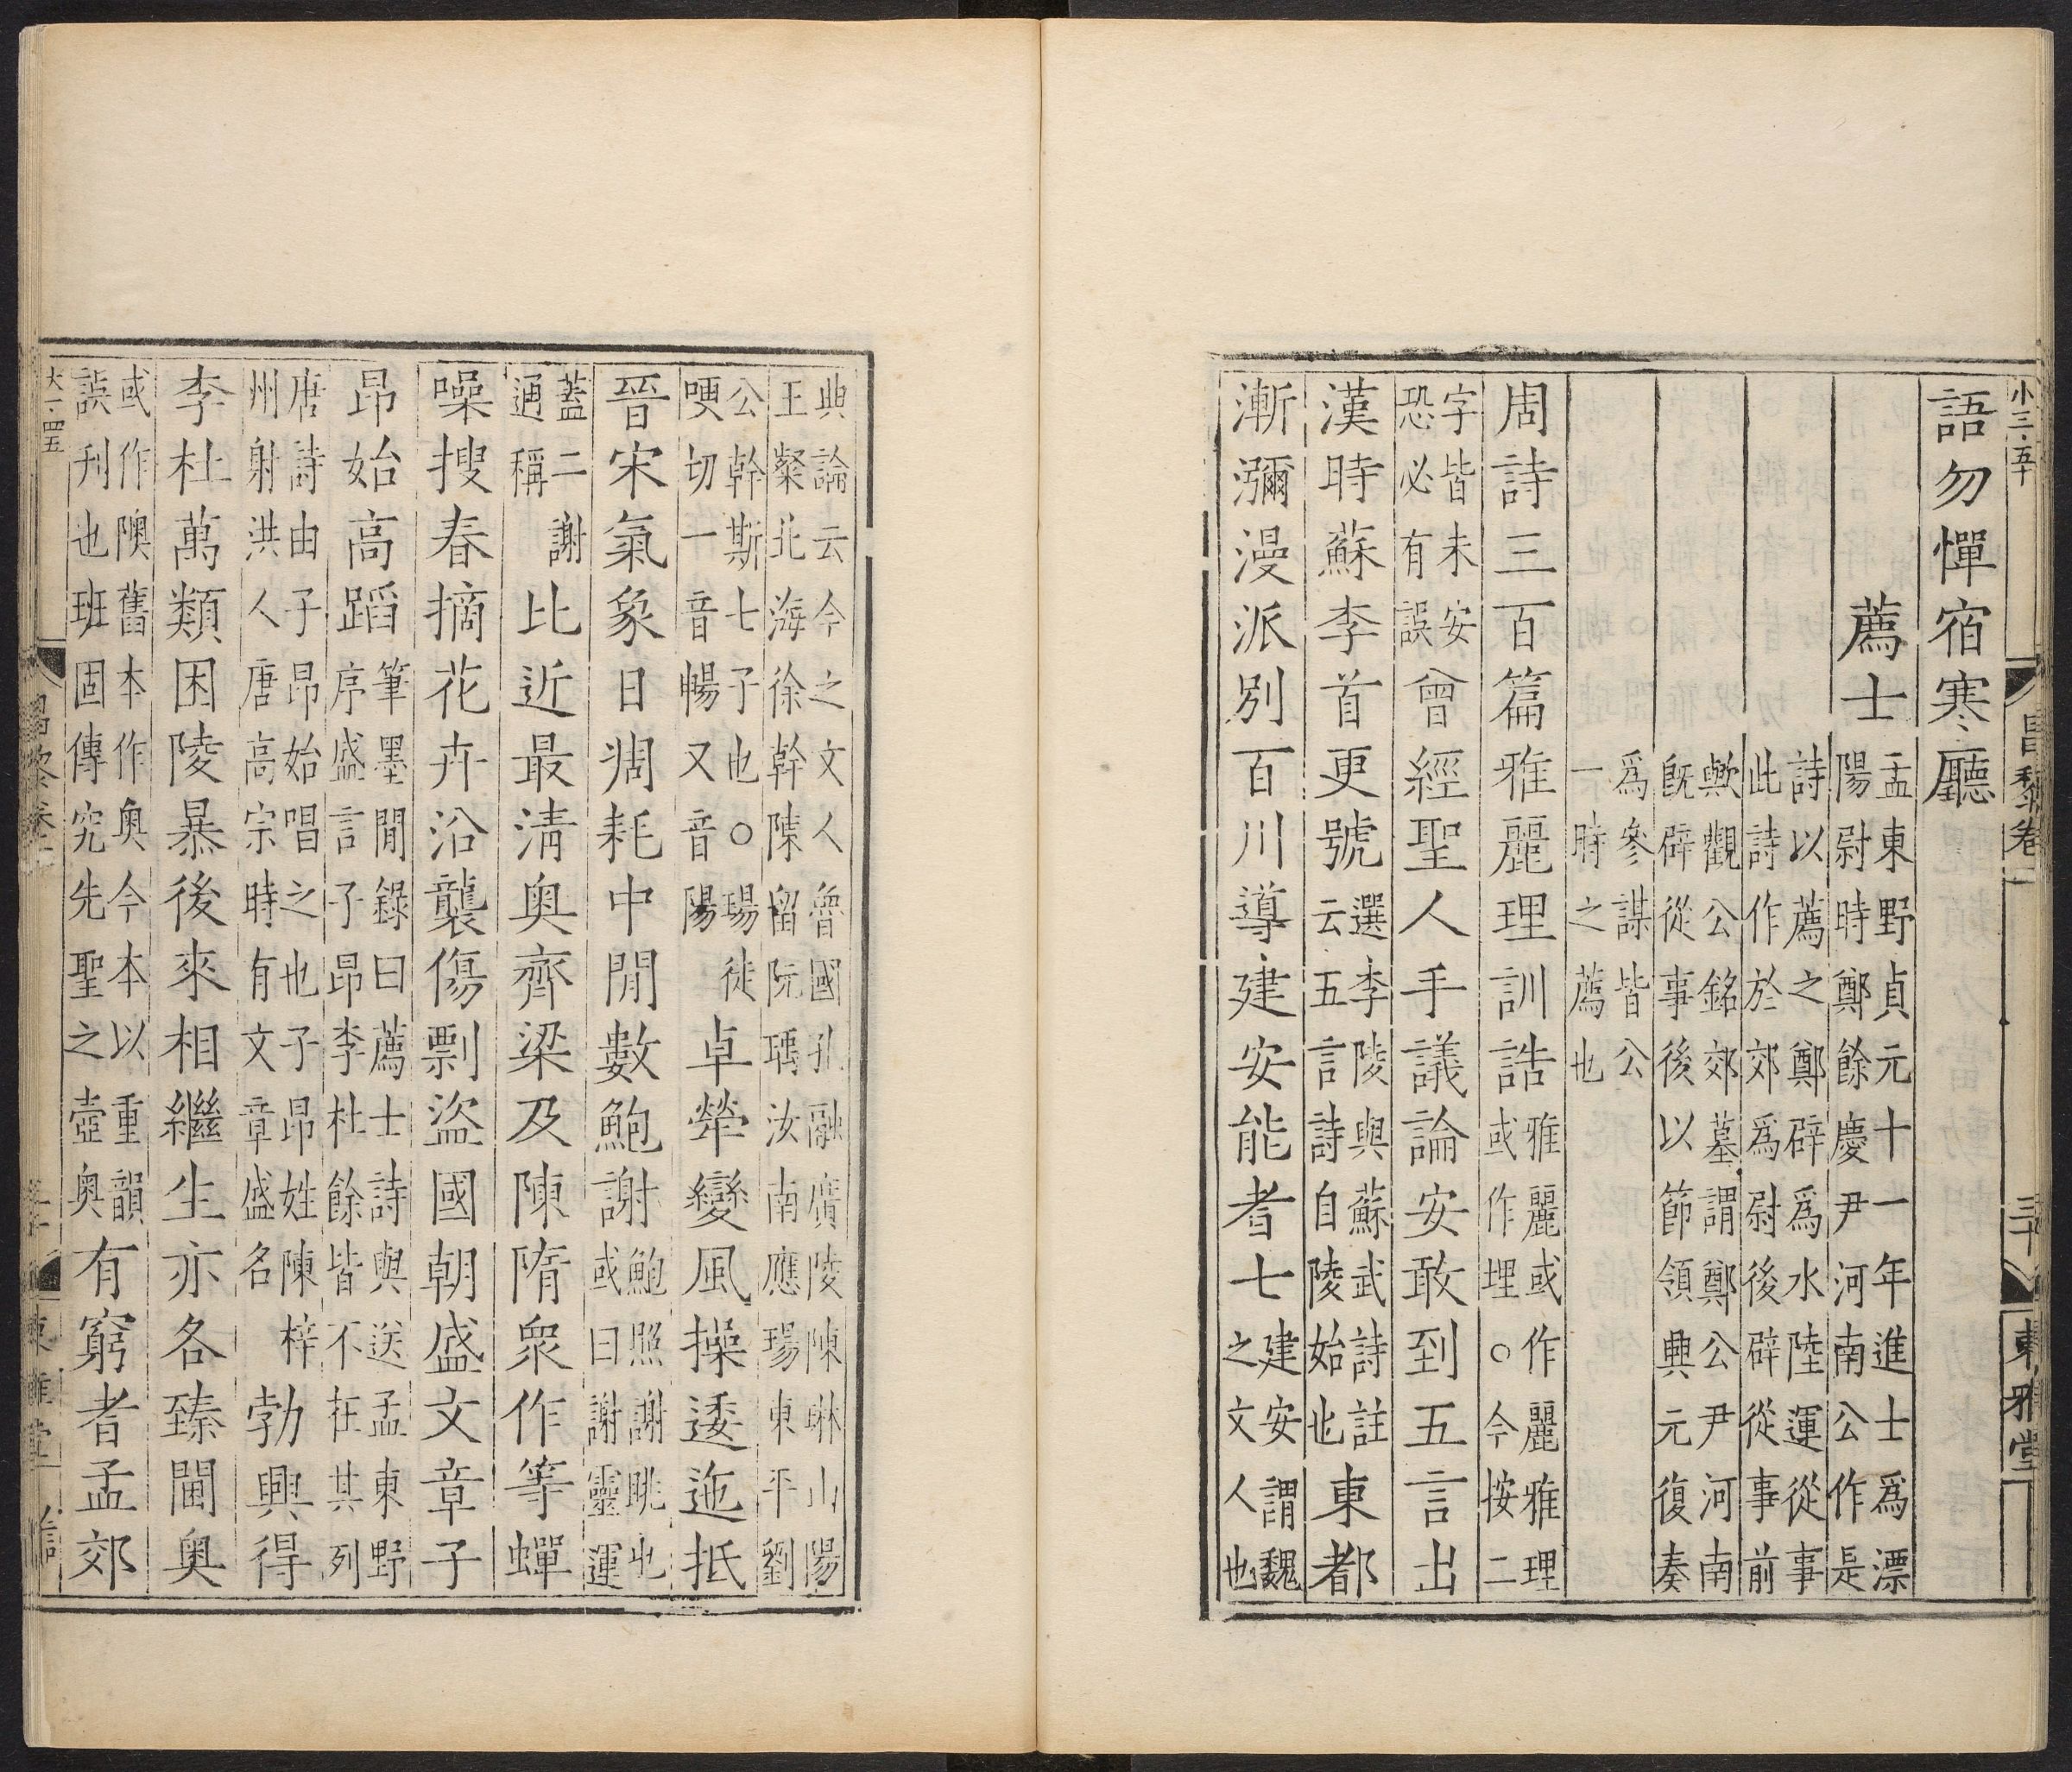 小三·五十
昌黎卷二
三十
東雅堂
語勿憚宿寒廳
薦士
孟東野貞元十一年進士為漂
陽尉時鄭餘慶尹河南公作是
詩以薦之鄭辟為水陸運從事
此詩作於郊為尉後辟從事前
歟觀公銘郊墓謂鄭公尹河南
旣辟從事後以節領興元復奏
為參謀皆公
一時之薦也
周詩三百篇雅麗理訓誥
雅麗或作麗雅理
或作埋○今按二
字皆未安
恐必有誤
曾經聖人手議論安敢到五言出
漢時蘇李首更號
選李陵與蘇武詩註
云五言詩自陵始也
東都
漸瀰漫派別百川導建安能者七
建安謂魏
之文人也
典論云今之文人魯國孔融廣陵陳琳山陽
王粲北海徐幹陳留阮瑀汝南應瑒東平劉
公幹斯七子也○瑒徒
哽切一音暢又音陽
卓犖變風操逶迤抵
晉宋氣象日凋耗中間數鮑謝
鮑照謝眺也
或曰謝靈運
蓋二謝
通稱
比近最淸奧齊梁及陳隋衆作等蟬
噪搜春摘花卉沿襲傷剽盜國朝盛文章子
昂始高蹈
筆墨閒錄曰薦士詩與送孟東野
序盛言子昂李杜餘皆不在其列
唐詩由子昂始唱之也子昂姓陳梓
州射洪人唐高宗時有文章盛名
勃興得
李杜萬類困陵暴後來相繼生亦各臻閫奧
或作隩舊本作奧今本以重韻
誤刋也班固傳究先聖之壺奥
有窮者孟郊
大一·四五
昌黎卷二
東雅堂